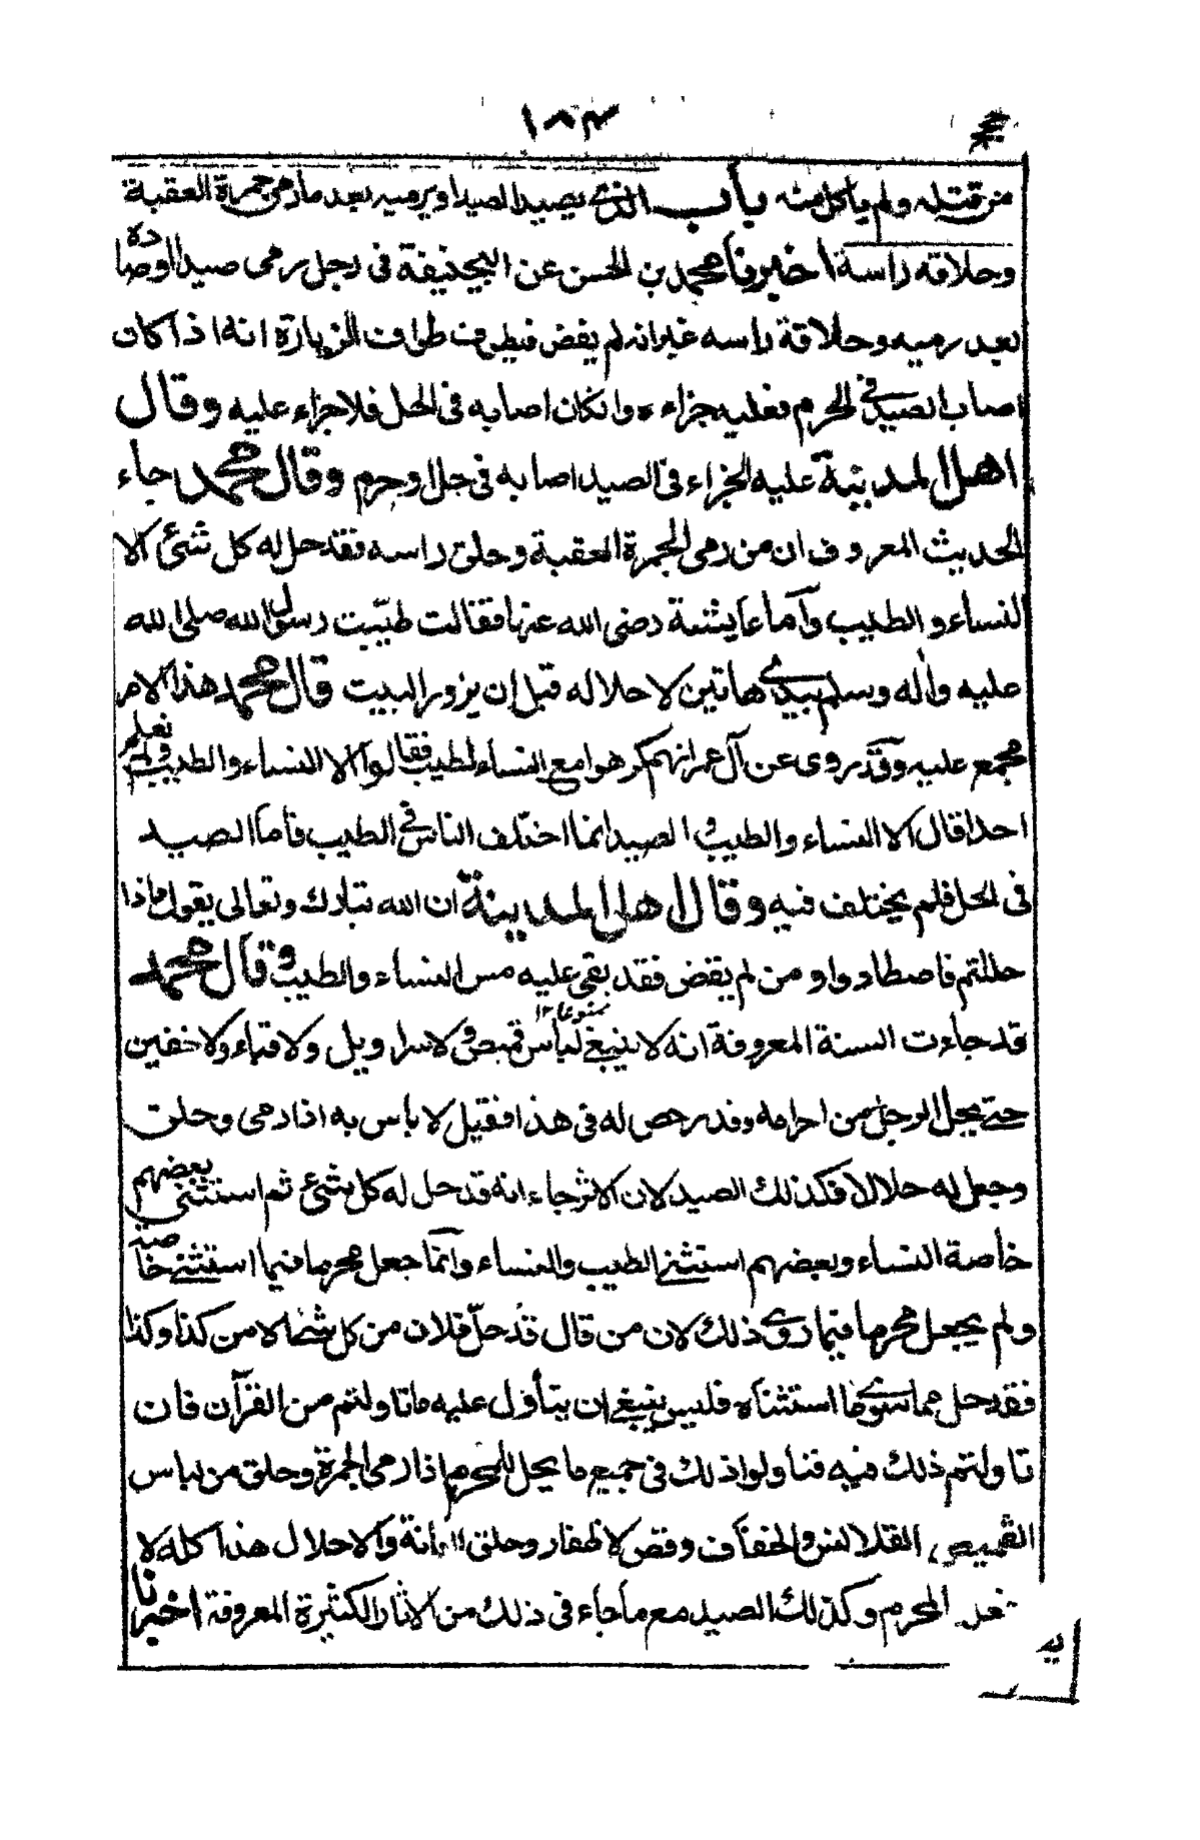 ١٨٣
من قتله ولم ياكل منه باب الذي يصيد الصيد او يرميه بعد ما رمى جمرة العقبة
وحلاقه راسة اخبرنا محمد بن الحسن عن ابيحنيفة فى رجل رمى صيدا او صاده
بعد رميه وحلاقة راسه غيرانه لم يفض فيطوف طواف الزيارة انه اذا كان
اصاب الصيد في الحرم فعليه جزاء ه وانكان اصابه فى الحل فلا جزاء عليه وقال
اهل المدينة عليه الجزاء فى الصيد اصابه فى حل او حرم وقال محمد جاء
الحديث المعروف ان من رمى الجمرة العقبة وحلق راسه فقد حل له كل شئ الا
النساء والطيب وآما عايشة رضى الله عنها فقالت طيّبت رسول الله صلى الله
عليه واٰله وسلم بيدي هاتين لاحلاله قبل ان يزور البيت قال محمد هذا الامر
مجمع عليه وقد روى عن آل عمر انهم كرهوا مع النساء الطيب فقالوا الا النساء والطيب ولم نعلم
احدا قال الا النساء والطيب و الصيد انما اختلف الناس في الطيب فاما الصيد
فى الحل فلم يختلف فيه وقال اهل المدينة ان الله تبارك وتعالى يقول فاذا
حللتم فاصطادوا و من لم يفض فقد بقى عليه مس النساء والطيب و قال محمد
قد جاءت السنة المعروفة انه لا ينبغي لباس قميص و لا سراويل ولا قباء ولا خفين
ممنوعا ١٢
حتى يحل الرجل من احرامه وقد رخص له فى هذا فقيل لا باس به اذا رمى وحلق
وجعل له حلالا فكذلك الصيد لان الاثر جاء انه قد حل له كل شئ ثم استثنى بعضهم
خاصة النساء وبعضهم استثنى الطيب والنساء وانما جعل محرما فيما استثنى خاصة
ولم يجعل محرما فيما روي ذلك لان من قال قد حلّ فلان من كل شئ الا من كذا وكذا
فقد حل مما سوى ما استثناه فليس ينبغي ان يتأول عليه ما تاولتم من القرآن فان
تاولتم ذلك فيه فتأولوا ذلك فى جميع ما يحل للمحرم اذا رمى الجمرة وحلق من لباس
القميص القلانس والخفاف وقص الاظفار وحلق العانة والاحلال هذا كله لا
المحرم وكذلك الصيد مع ما جاء فى ذلك من الاثار الكثيرة المعروفة اخبرنا